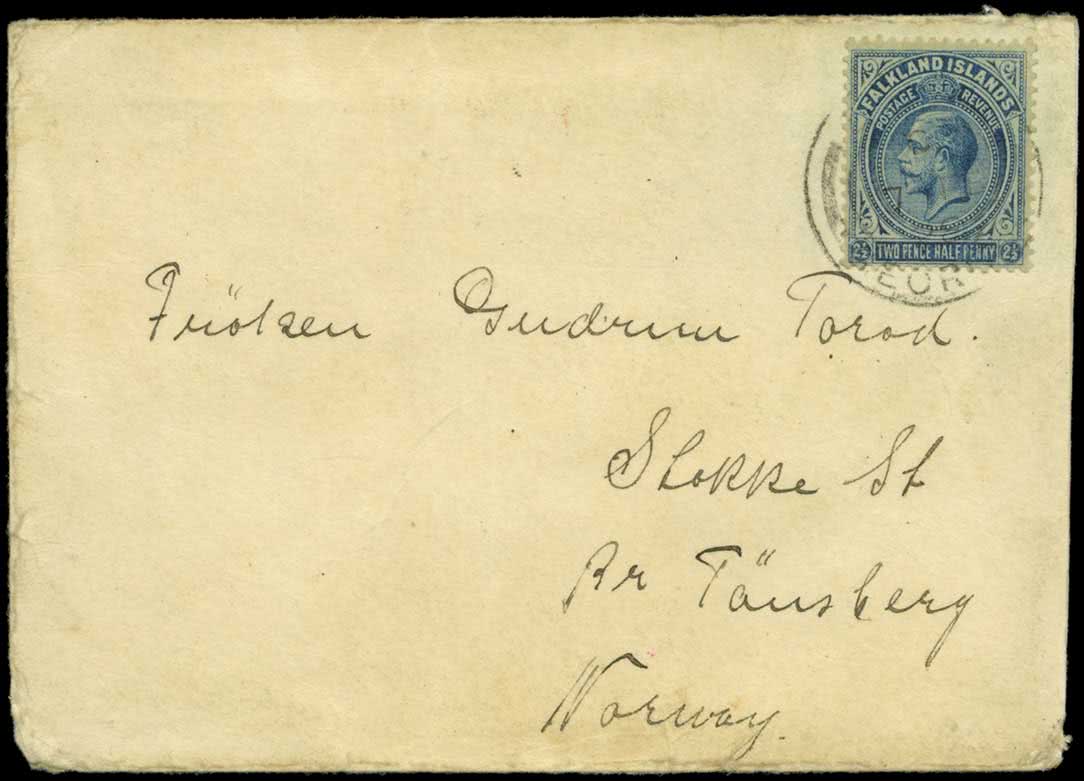 FALKLAND ISLANDS
POSTAGE REVENUE
2½ TWO PENCE HALF PENNY 2½
7
EOR
Fröiken Gudrun Torod.
Stokke St
Pr Tönsberg
Norway.